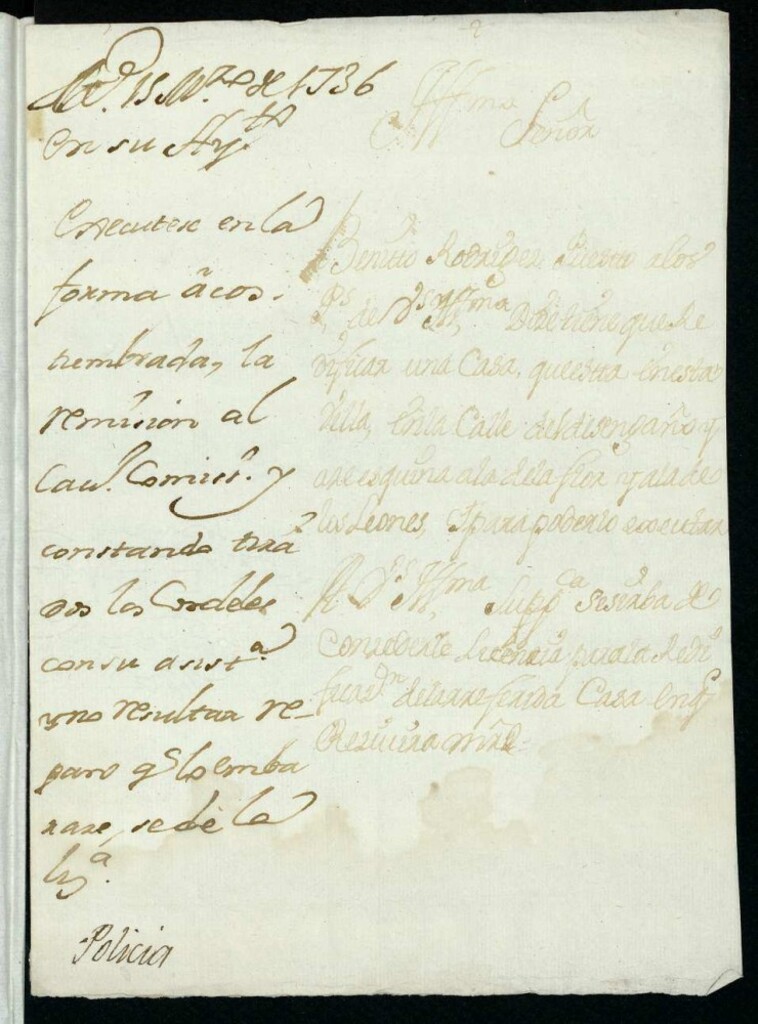 M.d 15 M.zo de 1736
en su Ay.to
Executese en la
forma acos-
tumbrada, la
remision al
Cau.o Comiss.o y
constando tira
dos los Cordeles
con su asist.a
y no resultar re-
paro q.e lo emba
raze, se dè la
liz.a
Policia
Ill.mo Señor
Benito Rodriguez Puesto a los
P.s de V.S. Ill.ma Dize tiene que Re
dificar una Casa, que esta en esta
Villa, en la Calle del disengaño y
aze esquina ala dela flor y ala de
los Leones, Y para poderlo executar
A V.S. Ill.ma Supp.ca se sirba de
Concederle lizencia para la Redi
ficaz.n de la referida Casa en q.e
Reziuira mrd